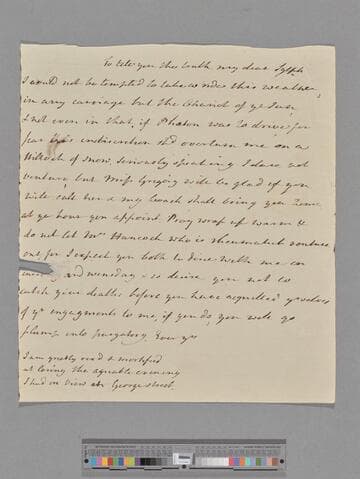 To tell you the truth my dear Sylph
I would not be tempted to take a ride this weather
in any carriage but the Chariot of ye Sun,
& not even in that, if Phaeton was to drive, for
fear his indiscretion shd overturn me on a
Hillock of snow, seriously speaking I dare not
venture, but Miss Gregory will be glad if you
will call her & my Coach shall bring you home
at ye hour you appoint. Pray wrap up warm &
do not let Mrs Hancock who is rheumatick venture
out, for I expect you both to dine with me on
and wensday & so desire you not to
catch your deaths before you have acquitted yrselves
of yr engagements to me, if you do, you will go
plump into purgatory. Your
I am greatly & mortified
at losing the agreable evening
I had in view at George street.